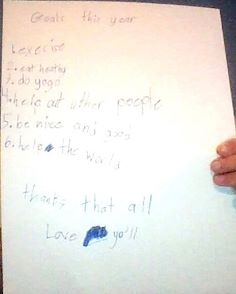 Goals this year
1.exercise
2.eat healthy
3.do yoga
4.help at uther people
5.be nice and good
6.help the world
thanks that all
Love yo'll